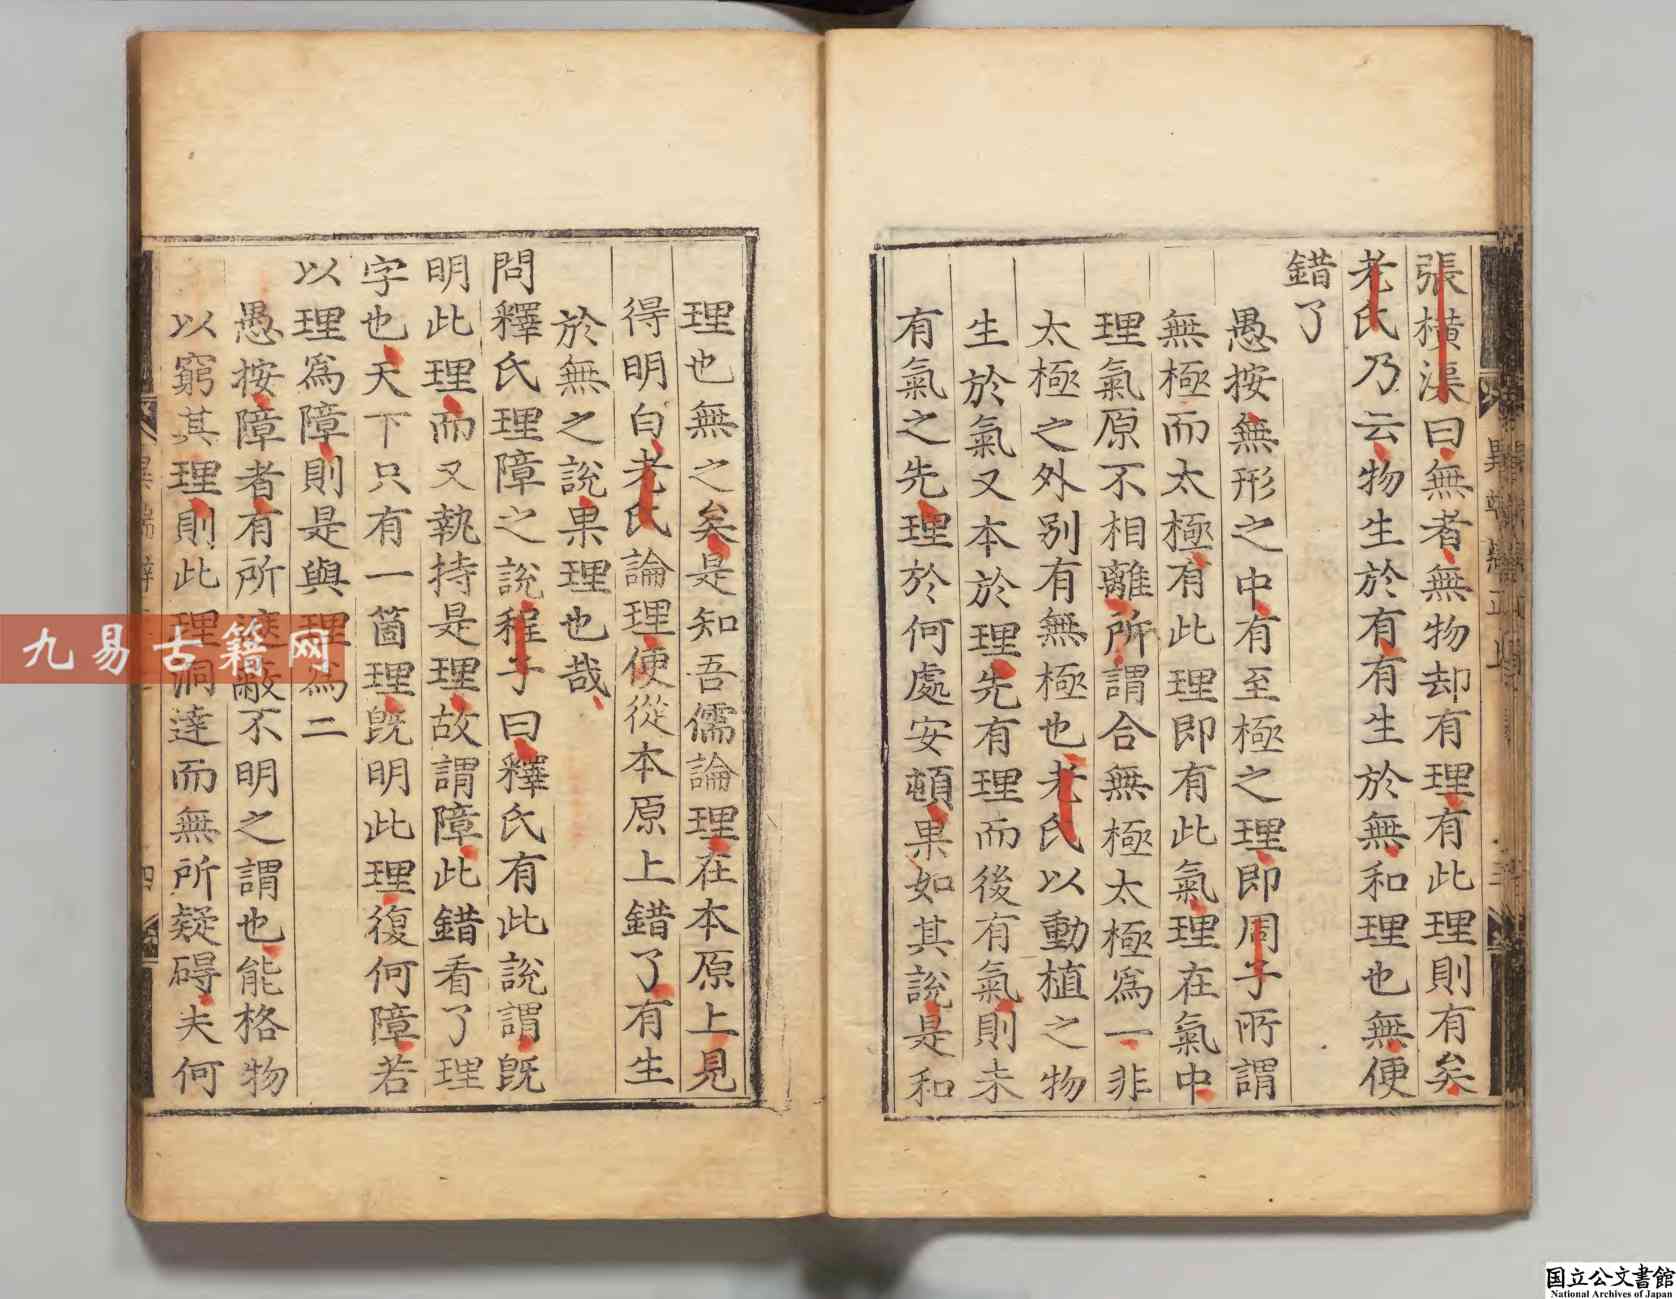 張橫渠曰無者無物却有理有此理則有矣
老氏乃云物生於有有生於無和理也無便
錯了
愚按無形之中有至極之理即周子所謂
無極而太極有此理即有此氣理在氣中
理氣原不相離所謂合無極太極為一非
太極之外別有無極也老氏以動植之物
生於氣又本於理先有理而後有氣則未
有氣之先理於何處安頓果如其說是和
理也無之矣是知吾儒論理在本原上見
得明白老氏論理便從本原上錯了有生
於無之說果理也哉
問釋氏理障之說程子曰釋氏有此說謂既
明此理而又執持是理故謂障此錯看了理
字也天下只有一箇理既明此理復何障若
以理為障則是與理為二
愚按障者有所遮蔽不明之謂也能格物
以窮其理則此理洞達而無所疑碍夫何
四
九易古籍网
国立公文書館
National Archives of Japan